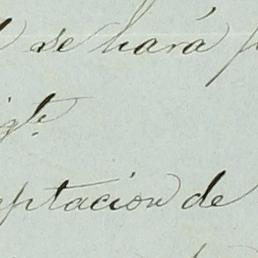 se hará
igte
eptacion de